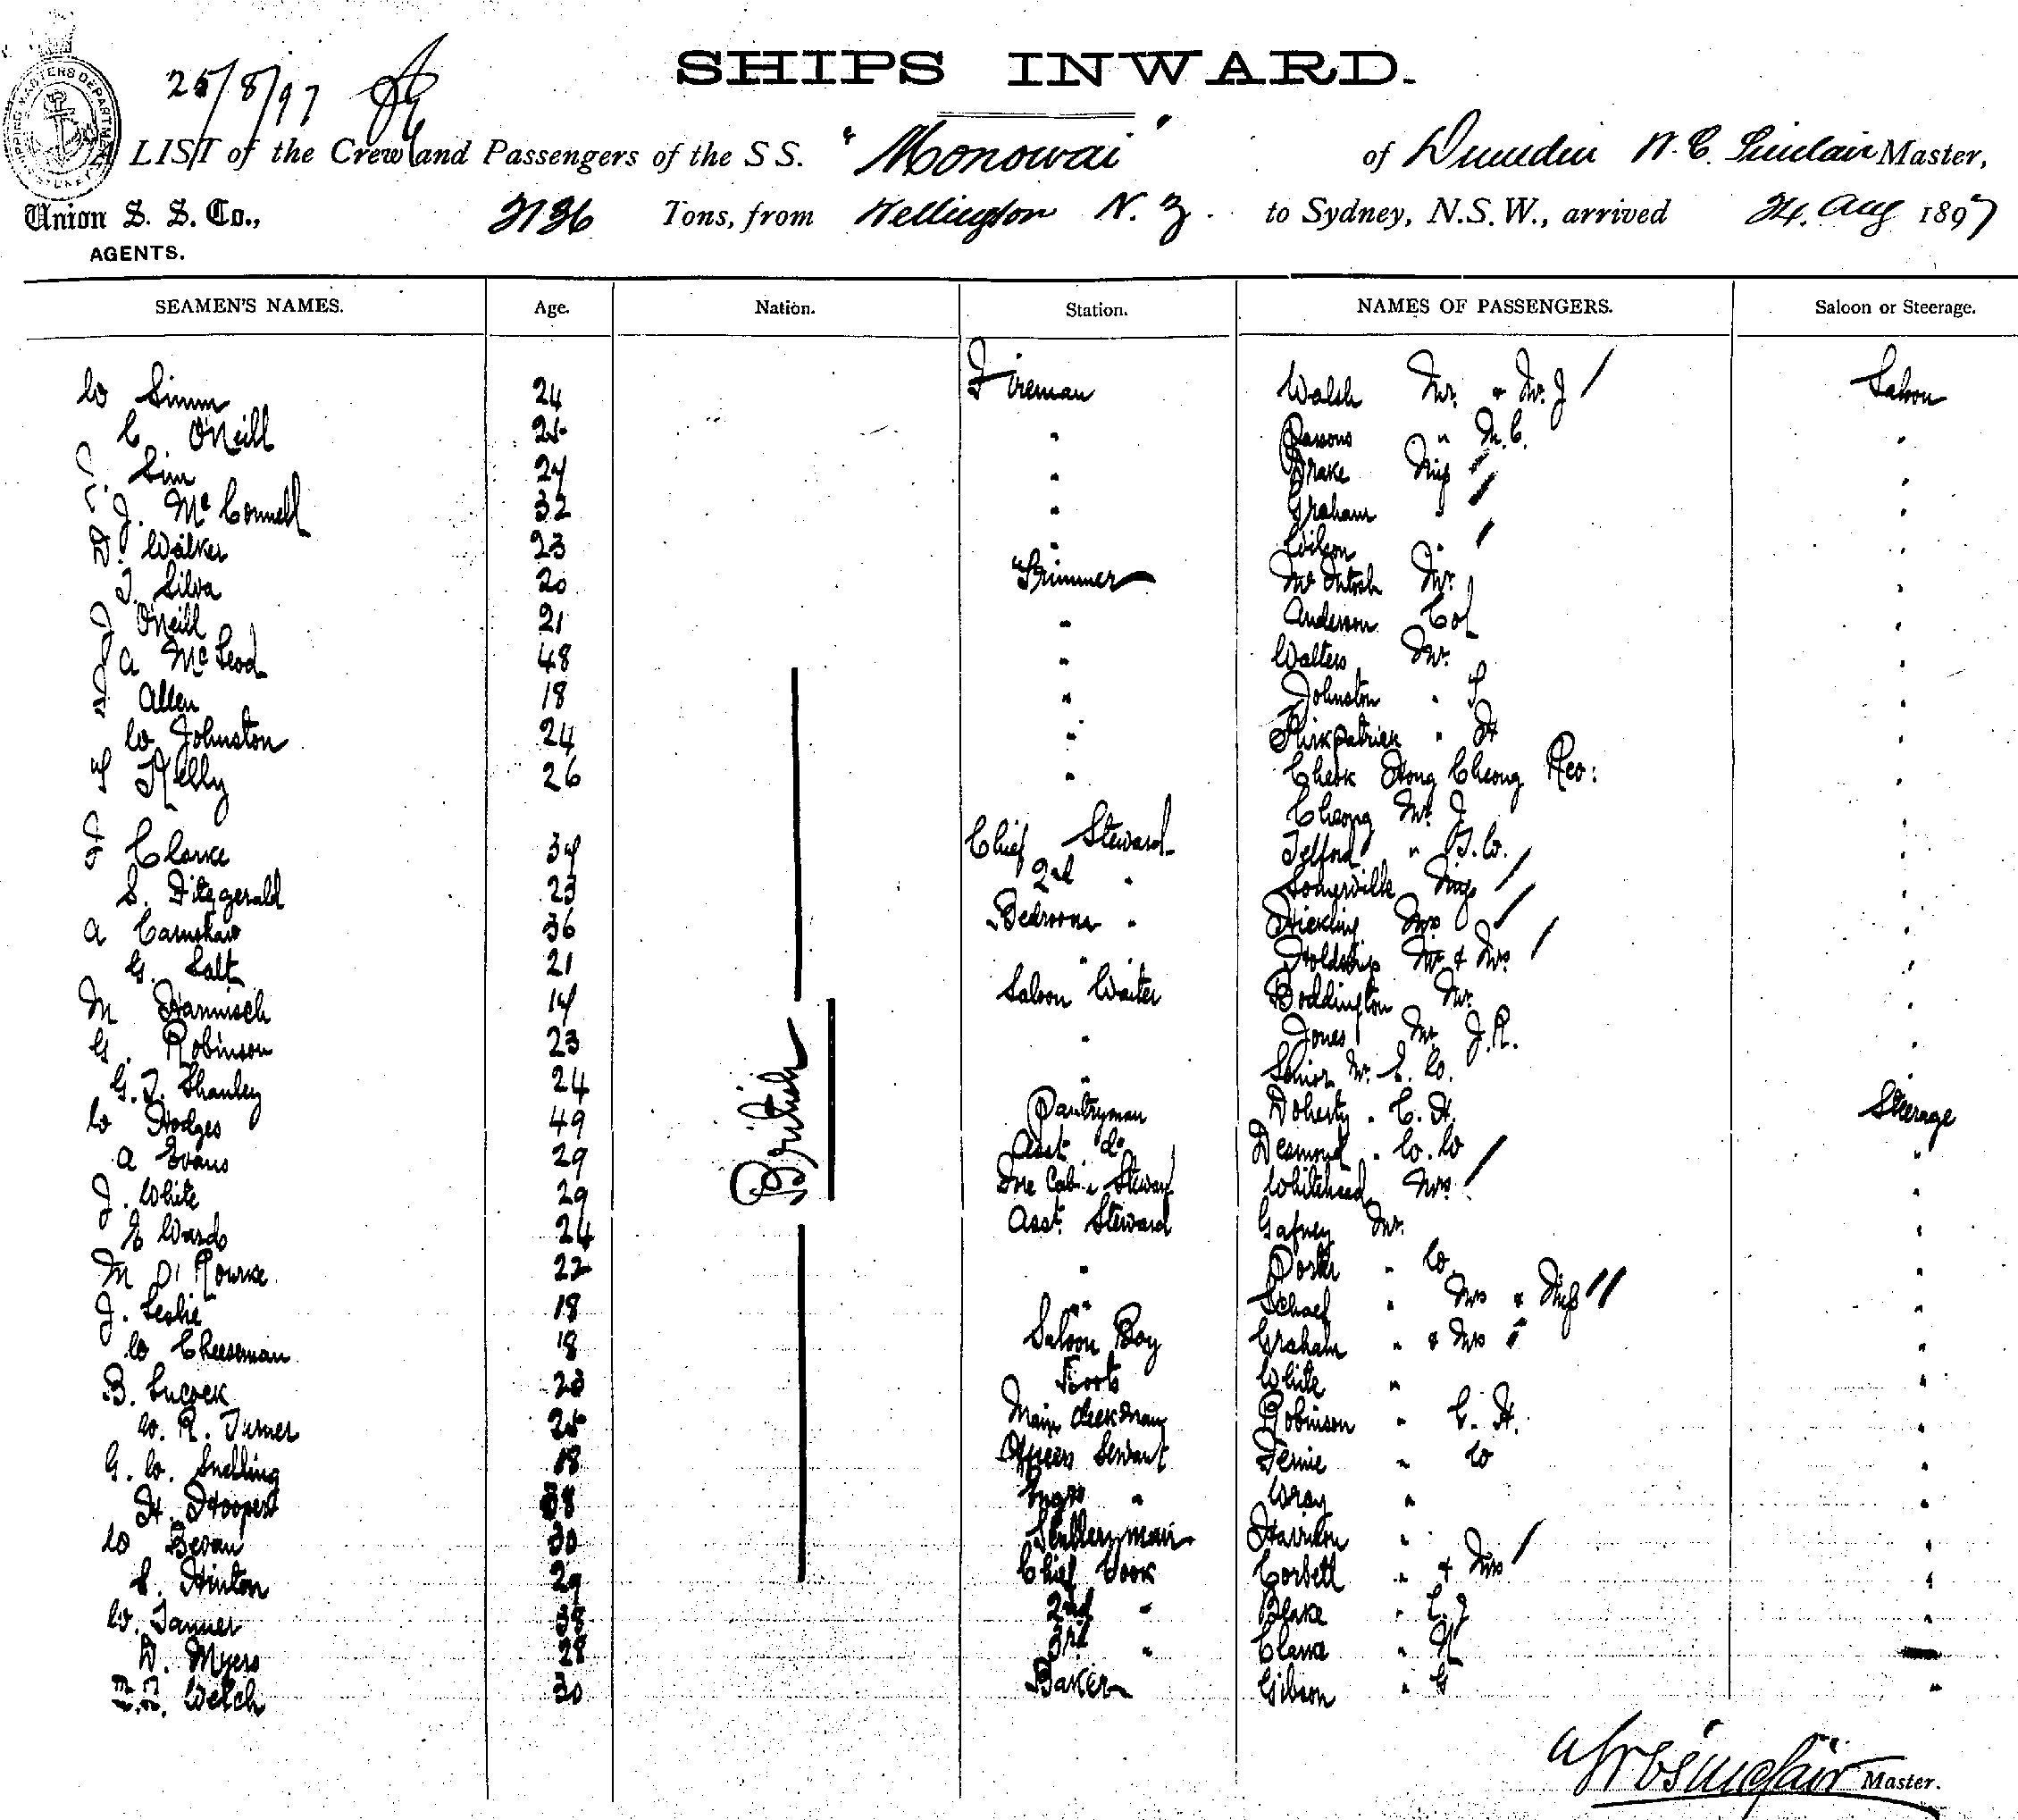 25/8/97
SHIPS INWARD.
A LIST of the Crew and Passengers of the S S. "Monowai" of Dunedin W. C. Sinclair Master,
Union S. S. Co., AGENTS. 3136 Tons, from Wellington N. Z. to Sydney, N.S.W., arrived 24. Aug 1897
SEAMEN'S NAMES. Age. Nation. Station. NAMES OF PASSENGERS. Saloon or Steerage.
W Simm 24 Fireman Walsh Mr. & Mr. J / Saloon
C O'Neill 25 " Parsons " M. C. "
Sim 24 " Drake Miss / "
J. McConnell 32 " Graham " / "
D. Walker 23 " Wilson " / "
T. Silva 20 Trimmer McIntosh Mr. "
J O'Neill 21 " Anderson Col "
A McLeod 48 " Walters Mr. "
Allen 18 " Johnston " T "
W Johnston 24 " Kirkpatrick " H "
T Kelly 26 " Cheok Hong Cheong Rev: "
Cheong Mr. J "
F Clarke 34 Chief Steward Telford " T. W. "
S. Fitzgerald 23 2nd " Somerville Miss / "
A Earnshaw 36 Bedroom " Hickling Mrs / "
G. Salt 21 " Holdship Mr & Mrs / "
M Hannisch 19 Saloon Waiter Boddington Mr. "
G. Robinson 23 " Jones Mr. J. R. "
G. T. Shanley 24 " Senior Mr. E. W. "
W Hodges 49 Pantryman Doherty " C. H. Steerage
A Evans 29 Asst. do Desmond " W. W "
J. White 29 Fore Cabin Steward Whitehead Mrs / "
E Ward 24 Asst. Steward Gafney Mr. "
M O'Rourke 22 " Porter " W. "
J. Leslie 18 " Schael " Mrs & Miss // "
W Cheeseman 18 Saloon Boy Graham " & Mrs / "
B. Lucock 23 Boots White " "
W. R. Turner 25 Main deckman Robinson " C. H. "
G. W. Snelling 18 Officers Servant Fernie " W "
H. Hooper 38 Engrs " Wray " "
W Bevan 30 Sculleryman Harrison " "
S. Hinton 29 Chief Cook Corbett " & Mrs / "
W. Tanner 38 2nd " Blake " C. J "
D. Myers 28 3rd " Clark "
Welch 30 Baker Gibson " G "
British
W C Sinclair Master.